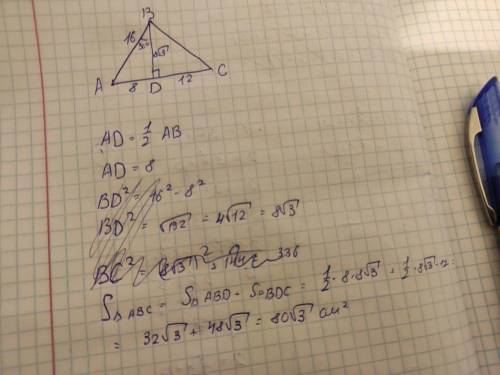 B
16 30° 8√3
A 8 D 12 C
AD = 1/2 AB
AD = 8
BD² = 16² - 8²
BD² = √192 = 4√12 = 8√3
BC² = (8√3)² + 336
S△ABC = S△ABD + S△BDC = 1/2 · 8 · 8√3 + 1/2 · 8√3 · 12 =
= 32√3 + 48√3 = 80√3 см²